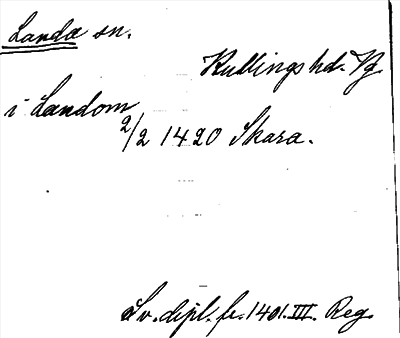 Landa sn.
Kullings hd. Vg
i Landom
2/2 1420 Skara.
Sv. dipl. fr. 1401. III. Reg.